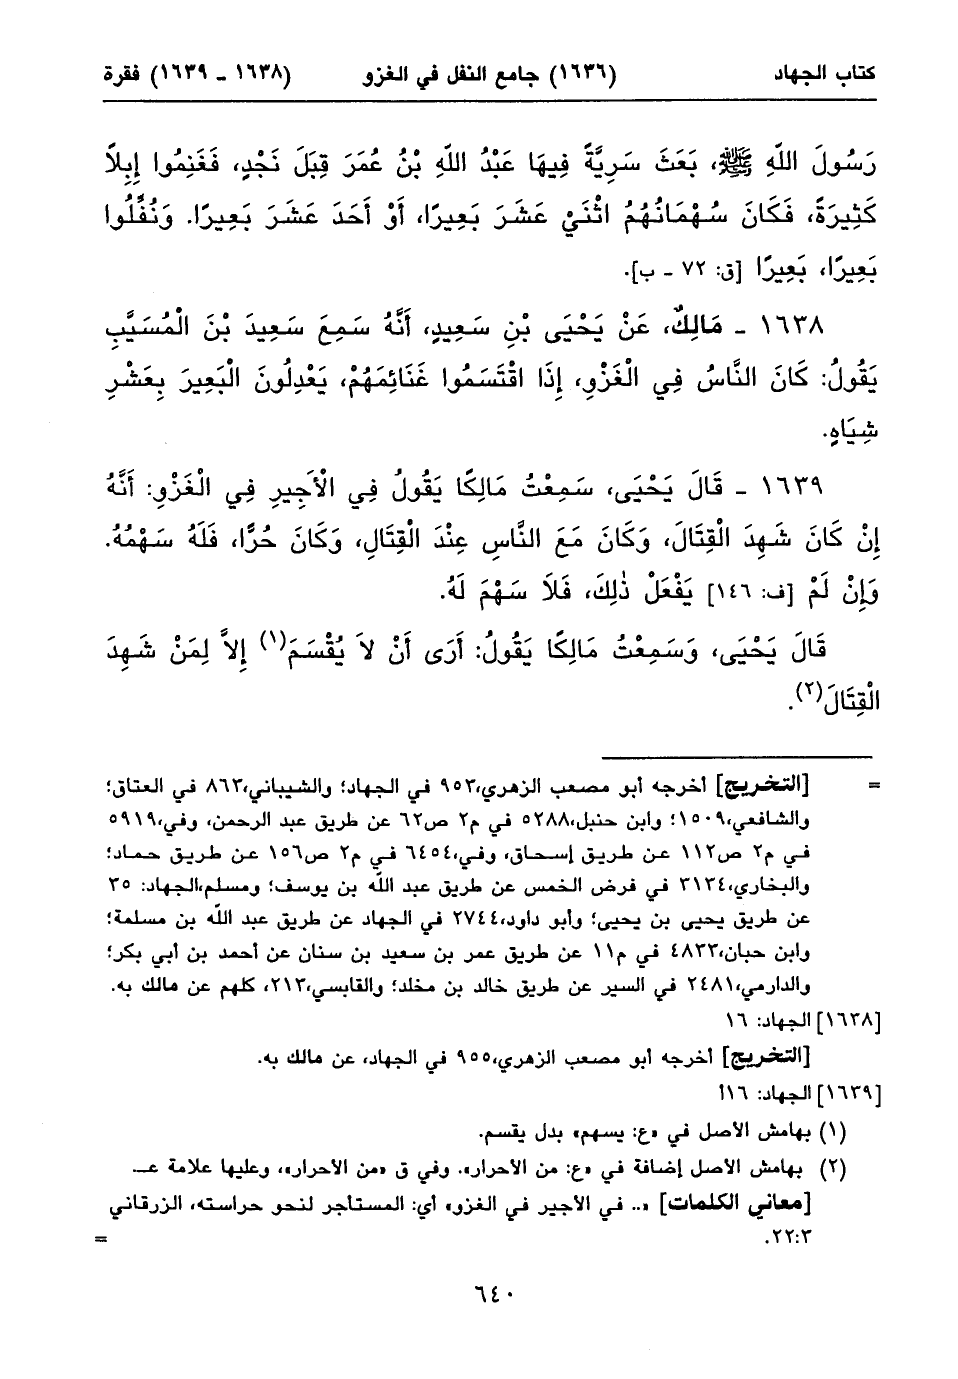 كتاب الجهاد (١٦٣٦) جامع النفل في الغزو (١٦٣٨ - ١٦٣٩) فقرة
رَسُولَ اللَّهِ ﷺ، بَعَثَ سَرِيَّةً فِيهَا عَبْدُ اللَّهِ بْنُ عُمَرَ قِبَلَ نَجْدٍ، فَغَنِمُوا إِبِلاً
كَثِيرَةً، فَكَانَ سُهْمَانُهُمُ اثْنَيْ عَشَرَ بَعِيرًا، أَوْ أَحَدَ عَشَرَ بَعِيرًا. وَنُفِّلُوا
بَعِيرًا، بَعِيرًا [ق: ٧٢ - ب].
١٦٣٨ - مَالِكٌ، عَنْ يَحْيَى بْنِ سَعِيدٍ، أَنَّهُ سَمِعَ سَعِيدَ بْنَ الْمُسَيَّبِ
يَقُولُ: كَانَ النَّاسُ فِي الْغَزْوِ، إِذَا اقْتَسَمُوا غَنَائِمَهُمْ، يَعْدِلُونَ الْبَعِيرَ بِعَشْرِ
شِيَاهٍ.
١٦٣٩ - قَالَ يَحْيَى، سَمِعْتُ مَالِكًا يَقُولُ فِي الْأَجِيرِ فِي الْغَزْوِ: أَنَّهُ
إِنْ كَانَ شَهِدَ الْقِتَالَ، وَكَانَ مَعَ النَّاسِ عِنْدَ الْقِتَالِ، وَكَانَ حُرًّا، فَلَهُ سَهْمُهُ.
وَإِنْ لَمْ [ف: ١٤٦] يَفْعَلْ ذٰلِكَ، فَلاَ سَهْمَ لَهُ.
قَالَ يَحْيَى، وَسَمِعْتُ مَالِكًا يَقُولُ: أَرَى أَنْ لاَ يُقْسَمَ(١) إِلاَّ لِمَنْ شَهِدَ
الْقِتَالَ(٢).
= [التخريج] أخرجه أبو مصعب الزهري،٩٥٣ في الجهاد؛ والشيباني،٨٦٣ في العتاق؛
والشافعي،١٥٠٩؛ وابن حنبل،٥٢٨٨ في م٢ ص٦٢ عن طريق عبد الرحمن، وفي،٥٩١٩
في م٢ ص١١٢ عن طريق إسحاق، وفي،٦٤٥٤ في م٢ ص١٥٦ عن طريق حماد؛
والبخاري،٣١٣٤ في فرض الخمس عن طريق عبد الله بن يوسف؛ ومسلم،الجهاد: ٣٥
عن طريق يحيى بن يحيى؛ وأبو داود،٢٧٤٤ في الجهاد عن طريق عبد الله بن مسلمة؛
وابن حبان،٤٨٣٣ في م١١ عن طريق عمر بن سعيد بن سنان عن أحمد بن أبي بكر؛
والدارمي،٢٤٨١ في السير عن طريق خالد بن مخلد؛ والقابسي،٢١٣، كلهم عن مالك به.
[١٦٣٨] الجهاد: ١٦
[التخريج] أخرجه أبو مصعب الزهري،٩٥٥ في الجهاد، عن مالك به.
[١٦٣٩] الجهاد: ١٦أ
(١) بهامش الأصل في «ع: يسهم» بدل يقسم.
(٢) بهامش الأصل إضافة في «ع: من الأحرار». وفي ق «من الأحرار»، وعليها علامة عـ
[معاني الكلمات] «.. في الأجير في الغزو» أي: المستأجر لنحو حراسته، الزرقاني
٢٢:٣. =
٦٤٠